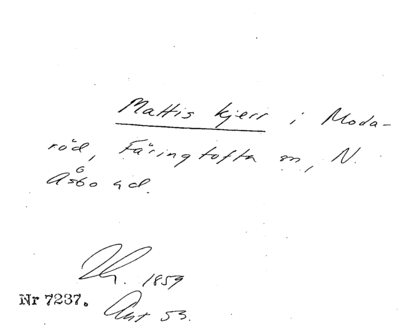 Mattis kjerr i Moda-
röd, Färingtofta sn, N.
Åsbo hd.
1859
Nr 7237.
Ant 53.